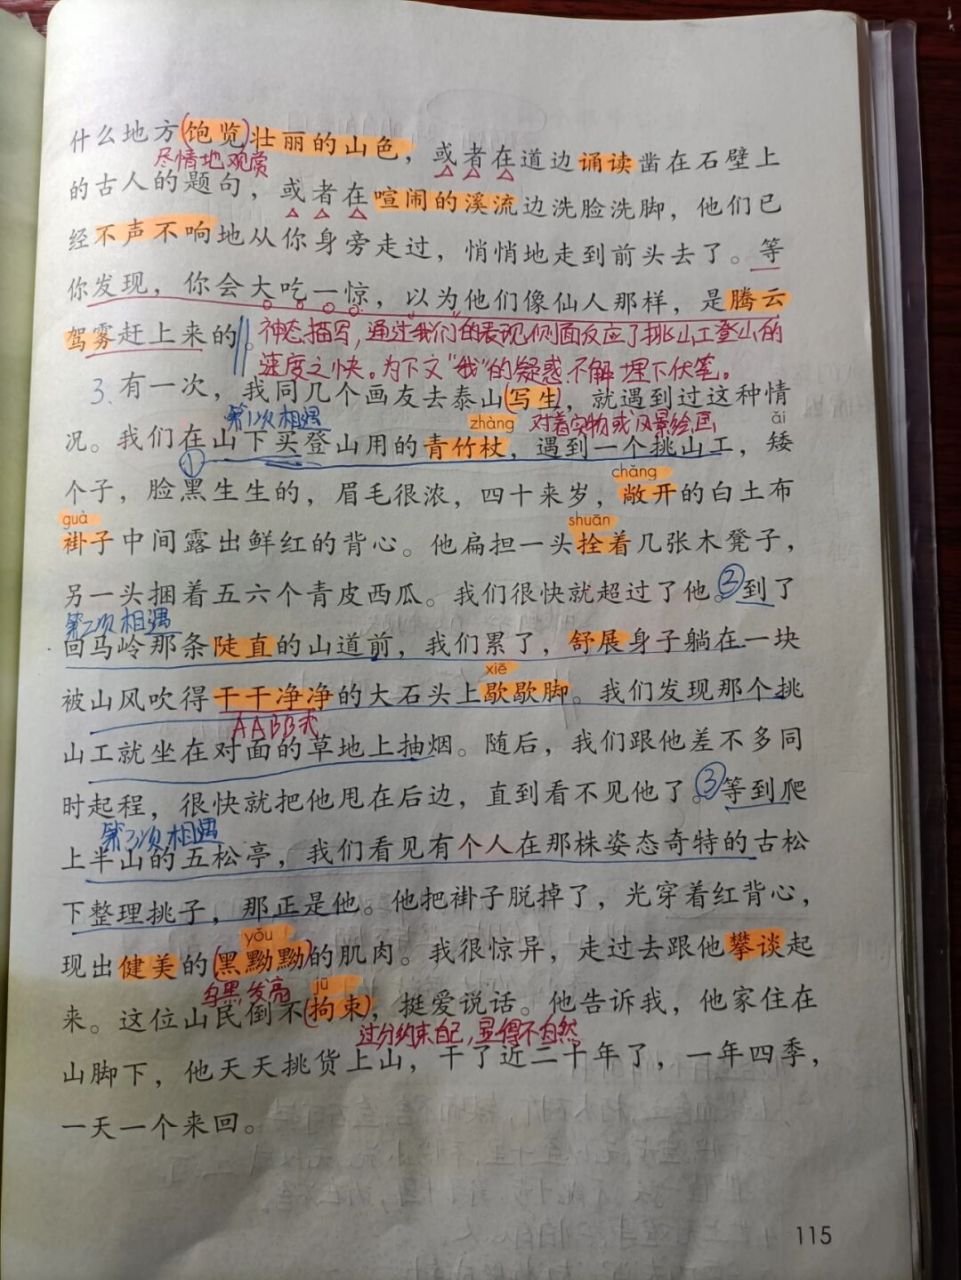 什么地方(饱览)壮丽的山色，或者在道边诵读凿在石壁上
尽情地观赏
的古人的题句，或者在喧闹的溪流边洗脸洗脚，他们已
经不声不响地从你身旁走过，悄悄地走到前头去了。等
你发现，你会大吃一惊，以为他们像仙人那样，是腾云
驾雾赶上来的。
神态描写，通过我们的表现侧面反应了挑山工登山的
速度之快。为下文“我”的疑惑不解埋下伏笔。
3.有一次，我同几个画友去泰山(写生)，就遇到过这种情
第1次相遇
zhàng
对着实物或风景绘画
ǎi
况。我们在山下买登山用的青竹杖，遇到一个挑山工，矮
①
chǎng
个子，脸黑生生的，眉毛很浓，四十来岁，敞开的白土布
guà
shuān
褂子中间露出鲜红的背心。他扁担一头拴着几张木凳子，
另一头捆着五六个青皮西瓜。我们很快就超过了他。②到了
第2次相遇
回马岭那条陡直的山道前，我们累了，舒展身子躺在一块
xiē
被山风吹得干干净净的大石头上歇歇脚。我们发现那个挑
AABB式
山工就坐在对面的草地上抽烟。随后，我们跟他差不多同
时起程，很快就把他甩在后边，直到看不见他了。③等到爬
第3次相遇
上半山的五松亭，我们看见有个人在那株姿态奇特的古松
下整理挑子，那正是他。他把褂子脱掉了，光穿着红背心，
yǒu
现出健美的(黑黝黝)的肌肉。我很惊异，走过去跟他攀谈起
乌黑发亮
jū
来。这位山民倒不(拘束)，挺爱说话。他告诉我，他家住在
过分约束自己，显得不自然
山脚下，他天天挑货上山，干了近二十年了，一年四季，
一天一个来回。
115